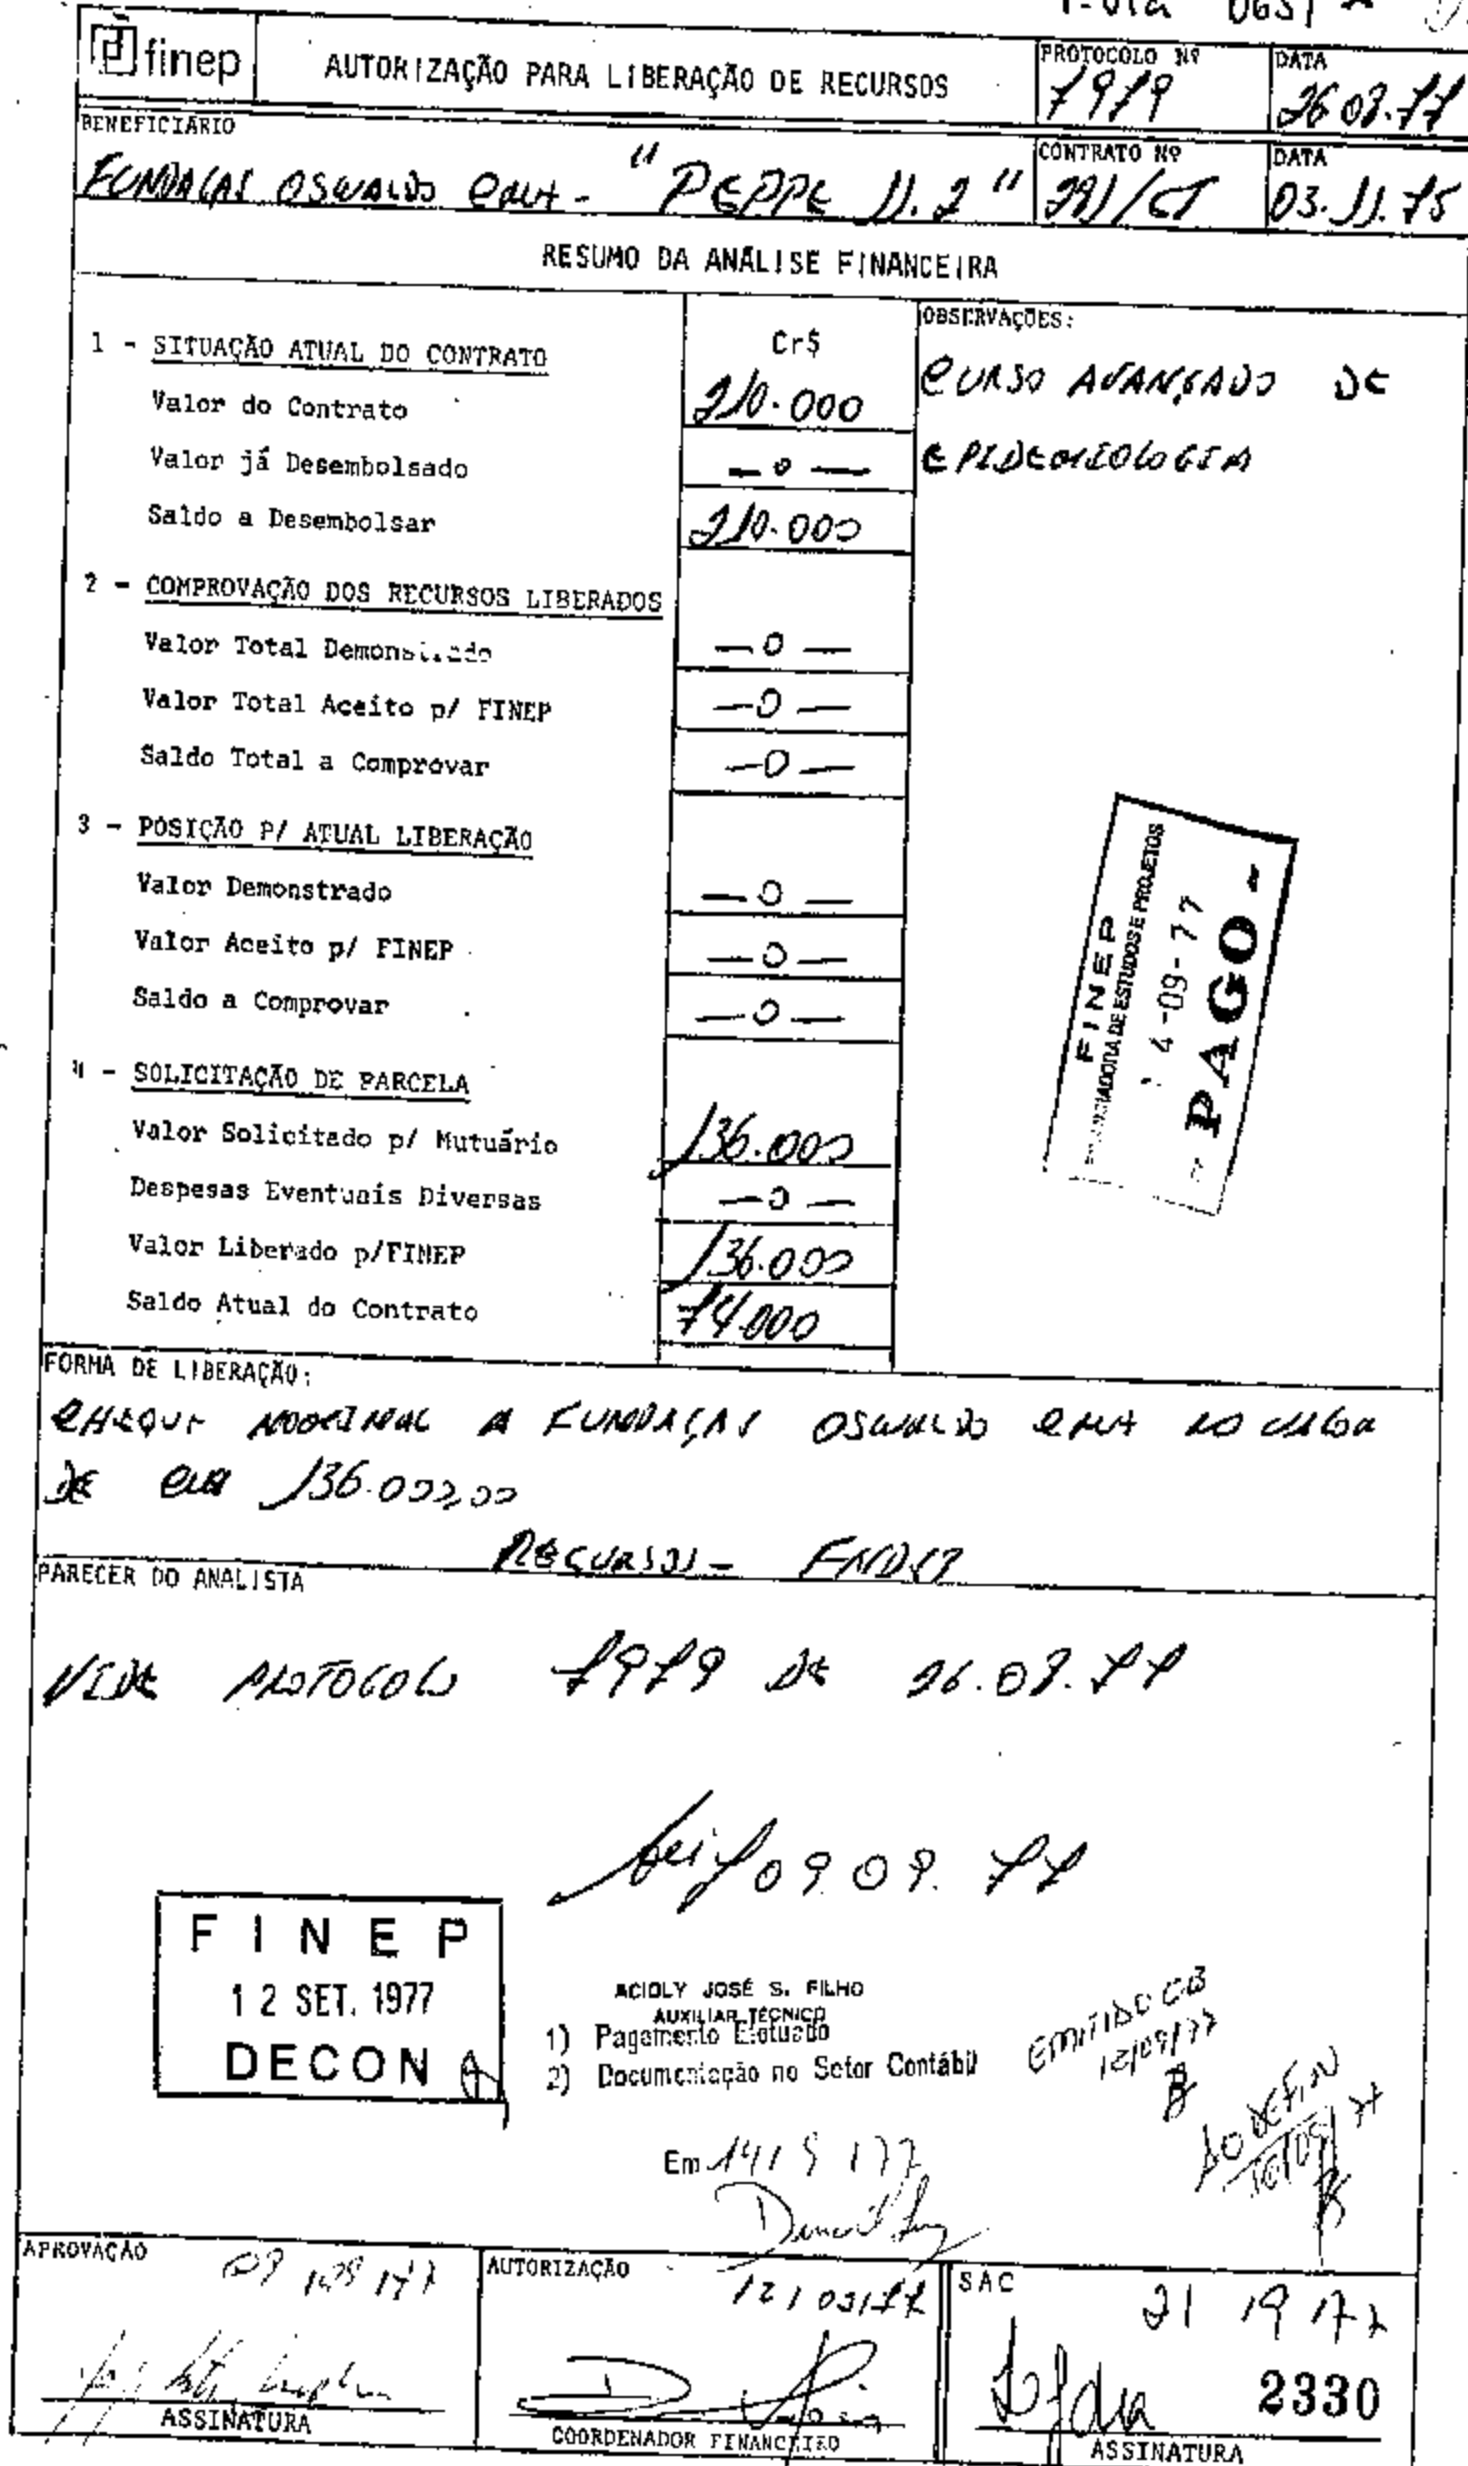 finep
AUTORIZAÇÃO PARA LIBERAÇÃO DE RECURSOS
PROTOCOLO Nº
7979
DATA
26.08.77
BENEFICIÁRIO
FUNDAÇÃO OSWALDO CRUZ - "PEPPE II.2"
CONTRATO Nº
291/CT
DATA
03.11.75
RESUMO DA ANÁLISE FINANCEIRA
Cr$
OBSERVAÇÕES:
CURSO AVANÇADO DE
EPIDEMIOLOGIA
1 - SITUAÇÃO ATUAL DO CONTRATO
Valor do Contrato 210.000
Valor já Desembolsado — 0 —
Saldo a Desembolsar 210.000
2 - COMPROVAÇÃO DOS RECURSOS LIBERADOS
Valor Total Demonstrado — 0 —
Valor Total Aceito p/ FINEP — 0 —
Saldo Total a Comprovar — 0 —
3 - POSIÇÃO P/ ATUAL LIBERAÇÃO
Valor Demonstrado — 0 —
Valor Aceito p/ FINEP — 0 —
Saldo a Comprovar — 0 —
FINEP
FINANCIADORA DE ESTUDOS E PROJETOS
14-09-77
- PAGO -
4 - SOLICITAÇÃO DE PARCELA
Valor Solicitado p/ Mutuário 136.000
Despesas Eventuais Diversas — 0 —
Valor Liberado p/FINEP 136.000
Saldo Atual do Contrato 74.000
FORMA DE LIBERAÇÃO:
CHEQUE NOMINAL A FUNDAÇÃO OSWALDO CRUZ NO VALOR
DE CR$ 136.000,00
RECURSOS - FNDCT
PARECER DO ANALISTA
VIDE PROTOCOLO 7979 DE 26.08.77
09.09.77
FINEP
12 SET. 1977
DECON
ACIOLY JOSÉ S. FILHO
AUXILIAR TÉCNICO
1) Pagamento Efetuado
2) Documentação no Setor Contábil
EMITIDO CB
12/09/77
AO DEFIN
Em 14/9/77
APROVAÇÃO
09/09/77
ASSINATURA
AUTORIZAÇÃO
12/09/77
COORDENADOR FINANCEIRO
SAC
21/9/77
2330
ASSINATURA